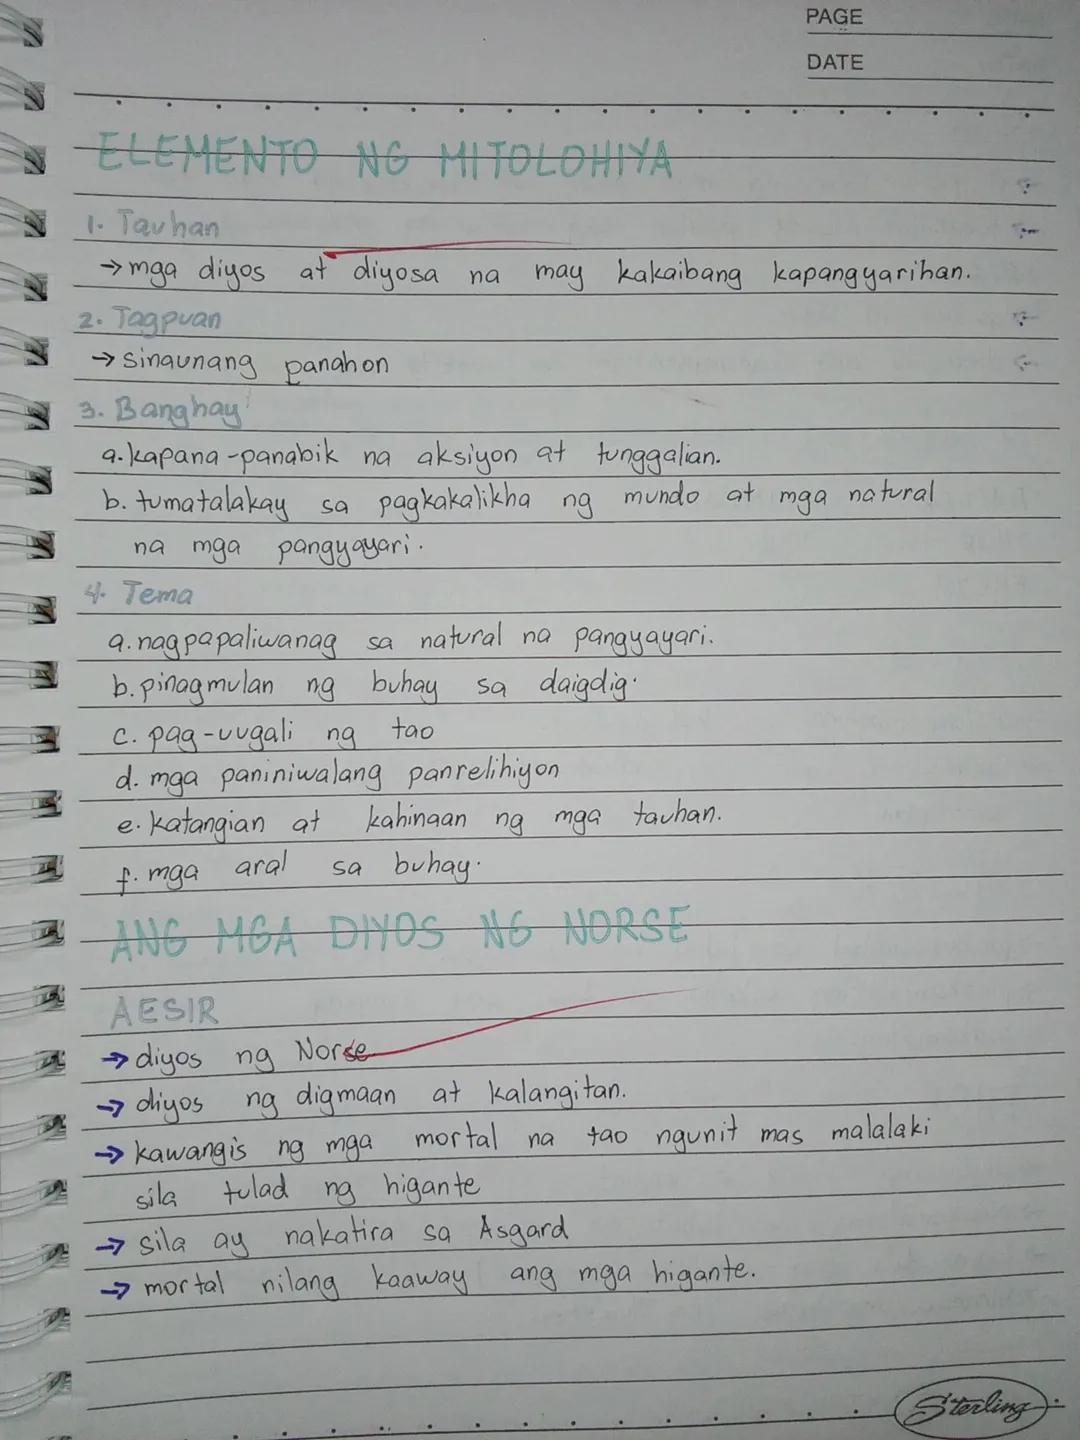 PAGE
DATE
ELEMENTO NG MITOLOHIYA
1. Tauhan
→ mga diyos at diyosa na may kakaibang kapangyarihan.
2. Tagpuan
→ sinaunang panahon
3. Banghay
a. kapana-panabik na aksiyon at tunggalian.
b. tumatalakay sa pagkakalikha ng mundo at mga natural
na mga pangyayari.
4. Tema
a. nagpapaliwanag sa natural na pangyayari.
b. pinagmulan ng buhay sa daigdig.
c. pag-uugali ng tao
d. mga paniniwalang panrelihiyon
e. katangian at kahinaan ng mga tauhan.
f. mga aral sa buhay.
ANG MGA DIYOS NG NORSE
AESIR
→ diyos ng Norse
→ diyos ng digmaan at kalangitan.
→ kawangis ng mga mortal na tao ngunit mas malalaki
sila tulad ng higante
→ sila ay nakatira sa Asgard
→ mortal nilang kaaway ang mga higante.
Sterling